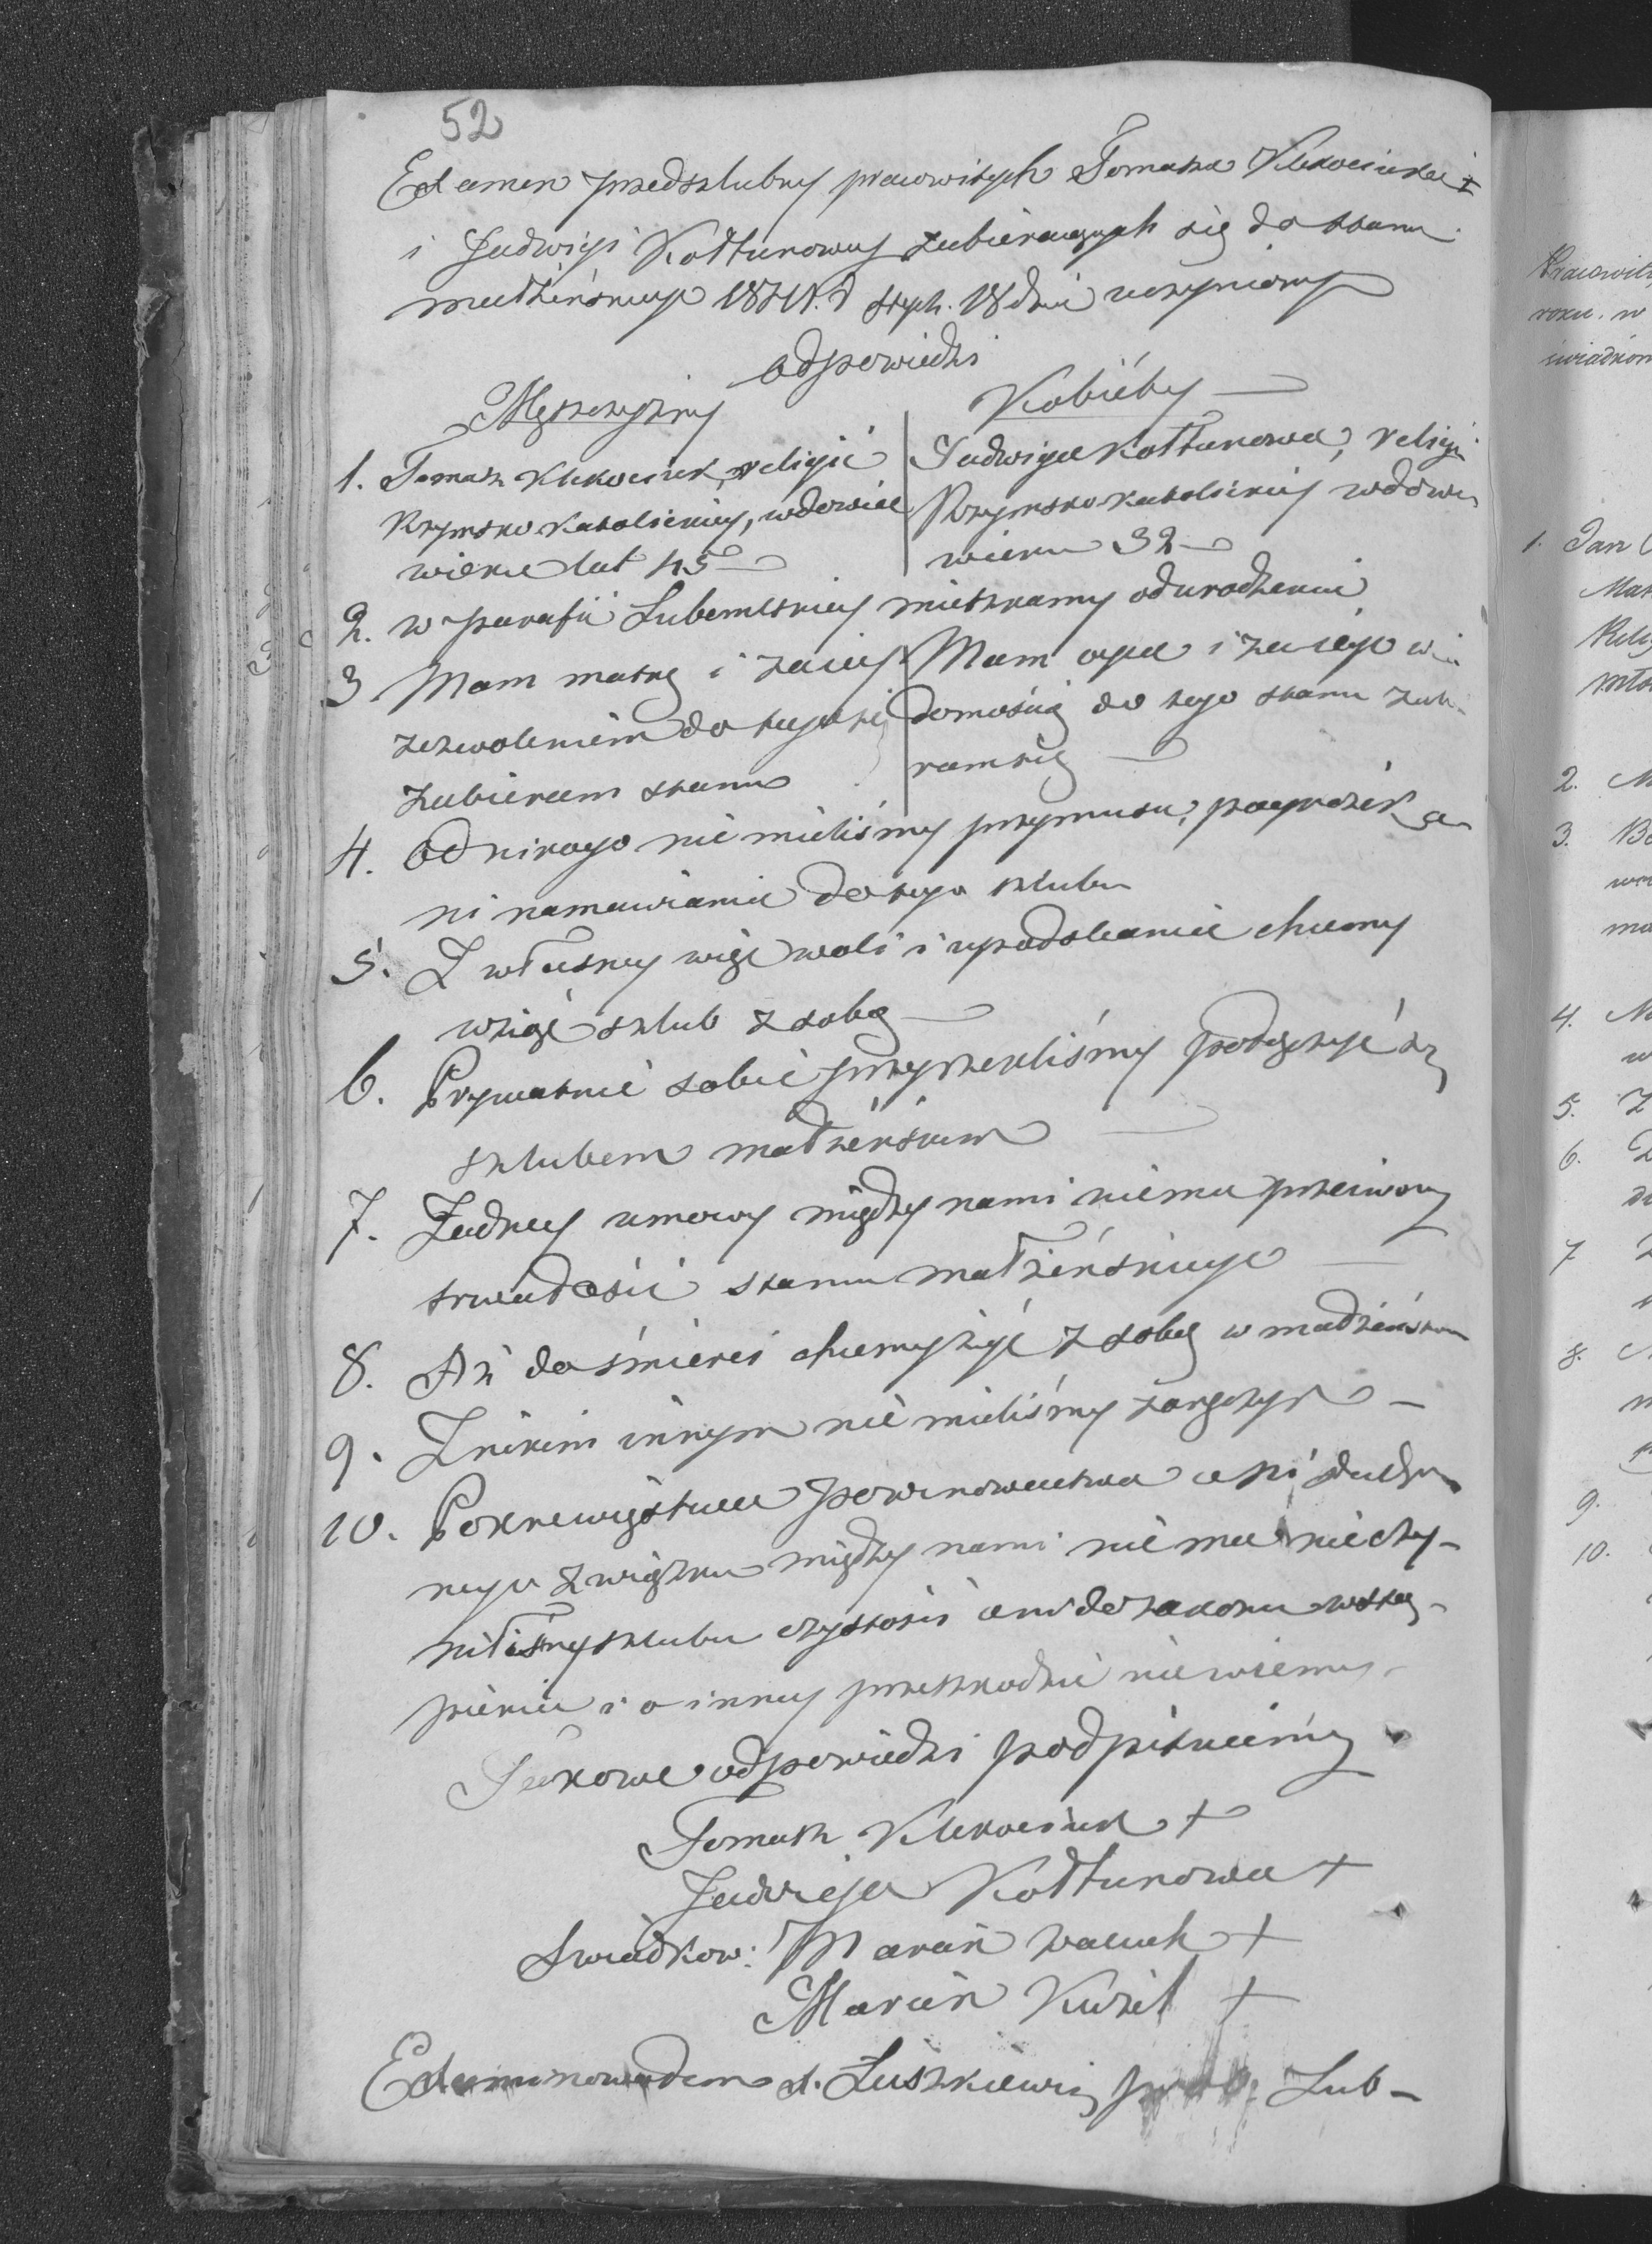 52
Examen przedszlubny pracowitych Tomasza Klekociuka
i Jadwigi Kołtunowey zabierających się do stanu
małżeńskiego stych. 18 dnia uczyniony
odpowiedzi
Męszczyzny
Kobiéty
1. Tomasz Klekociuk religii
Rzymsko Katolickiey, wdowiec
wieku lat 45
Jadwiga Kołtunowa, religii
Rzymsko Katolickiey wdowa
wieku 32
2. w parafii Lubomlskiey mieszkamy od urodzenia
3 Mam matkę i za iey
zezwoleniem do tego się
zabieram stanu
Mam oyca i za iego wia
domością do tego stanu zabie-
ram się
4. Od nikogo nie mieliśmy przymusu, pogróżek a
ni namawiania do tego szlubu
5. Z własney więc woli i upodobania chcemy
wziąć szlub z sobą
6. Prywatnie sobie przyrzekliśmy połączyć się
szlubem małżeńskim
7. Żadney umowy między nami niema przeciwney
trwałości stanu małżeńskiego
8. Aż do śmierci chcemy żyć z sobą w małżeństwie
9. Z nikim innym nie mieliśmy zaręczyn
10. Pokrewięstwa powinowactwa ani ducho
nego związku między nami nie ma nieczy-
niliśmy szlubu czystości ani do zakonu wstą-
pienia i o inney przeszkodzie nie wiemy
Takowe odpowiedzi podpisuiemy
Tomasz Klekociuk +
Jadwiga Kołtunowa +
Swiadkow: Marcin +
Marcin Kuzil +
Examinowałem X. Łuszkiewicz Lub-
Pracowity
roku. w
świadkom
1. Jan
2. M
3.
4.
5. Z
6.
7
8.
9.
10.